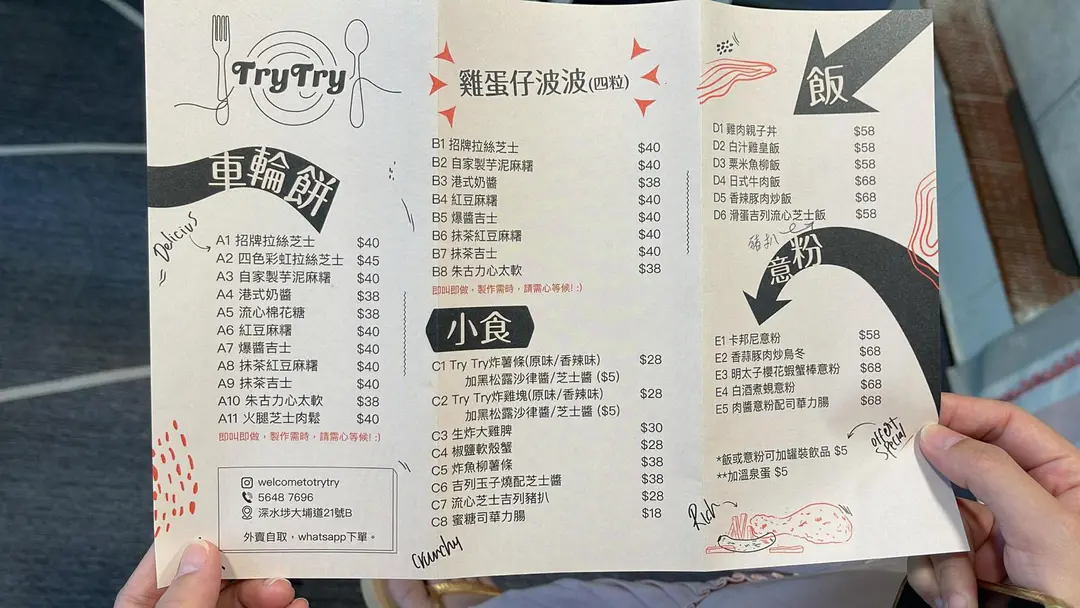 TryTry
車輪餅
Delicius
A1 招牌拉絲芝士 $40
A2 四色彩虹拉絲芝士 $45
A3 自家製芋泥麻糬 $40
A4 港式奶醬 $38
A5 流心棉花糖 $38
A6 紅豆麻糬 $40
A7 爆醬吉士 $40
A8 抹茶紅豆麻糬 $40
A9 抹茶吉士 $40
A10 朱古力心太軟 $38
A11 火腿芝士肉鬆 $40
即叫即做，製作需時，請需心等候! :)
welcometotrytry
5648 7696
深水埗大埔道21號B
外賣自取，whatsapp下單。
雞蛋仔波波(四粒)
B1 招牌拉絲芝士 $40
B2 自家製芋泥麻糬 $40
B3 港式奶醬 $38
B4 紅豆麻糬 $40
B5 爆醬吉士 $40
B6 抹茶紅豆麻糬 $40
B7 抹茶吉士 $40
B8 朱古力心太軟 $38
即叫即做，製作需時，請需心等候! :)
小食
C1 Try Try炸薯條(原味/香辣味) $28
加黑松露沙律醬/芝士醬 ($5)
C2 Try Try炸雞塊(原味/香辣味) $28
加黑松露沙律醬/芝士醬 ($5)
C3 生炸大雞脾 $30
C4 椒鹽軟殼蟹 $28
C5 炸魚柳薯條 $38
C6 吉列玉子燒配芝士醬 $38
C7 流心芝士吉列豬扒 $28
C8 蜜糖司華力腸 $18
Crunchy
飯
D1 雞肉親子丼 $58
D2 白汁雞皇飯 $58
D3 粟米魚柳飯 $58
D4 日式牛肉飯 $68
D5 香辣豚肉炒飯 $68
D6 滑蛋吉列流心芝士飯 $58
豬扒
意粉
E1 卡邦尼意粉 $58
E2 香蒜豚肉炒烏冬 $68
E3 明太子櫻花蝦蟹棒意粉 $68
E4 白酒煮蜆意粉 $68
E5 肉醬意粉配司華力腸 $68
offert
Special
*飯或意粉可加罐裝飲品 $5
**加溫泉蛋 $5
Rich